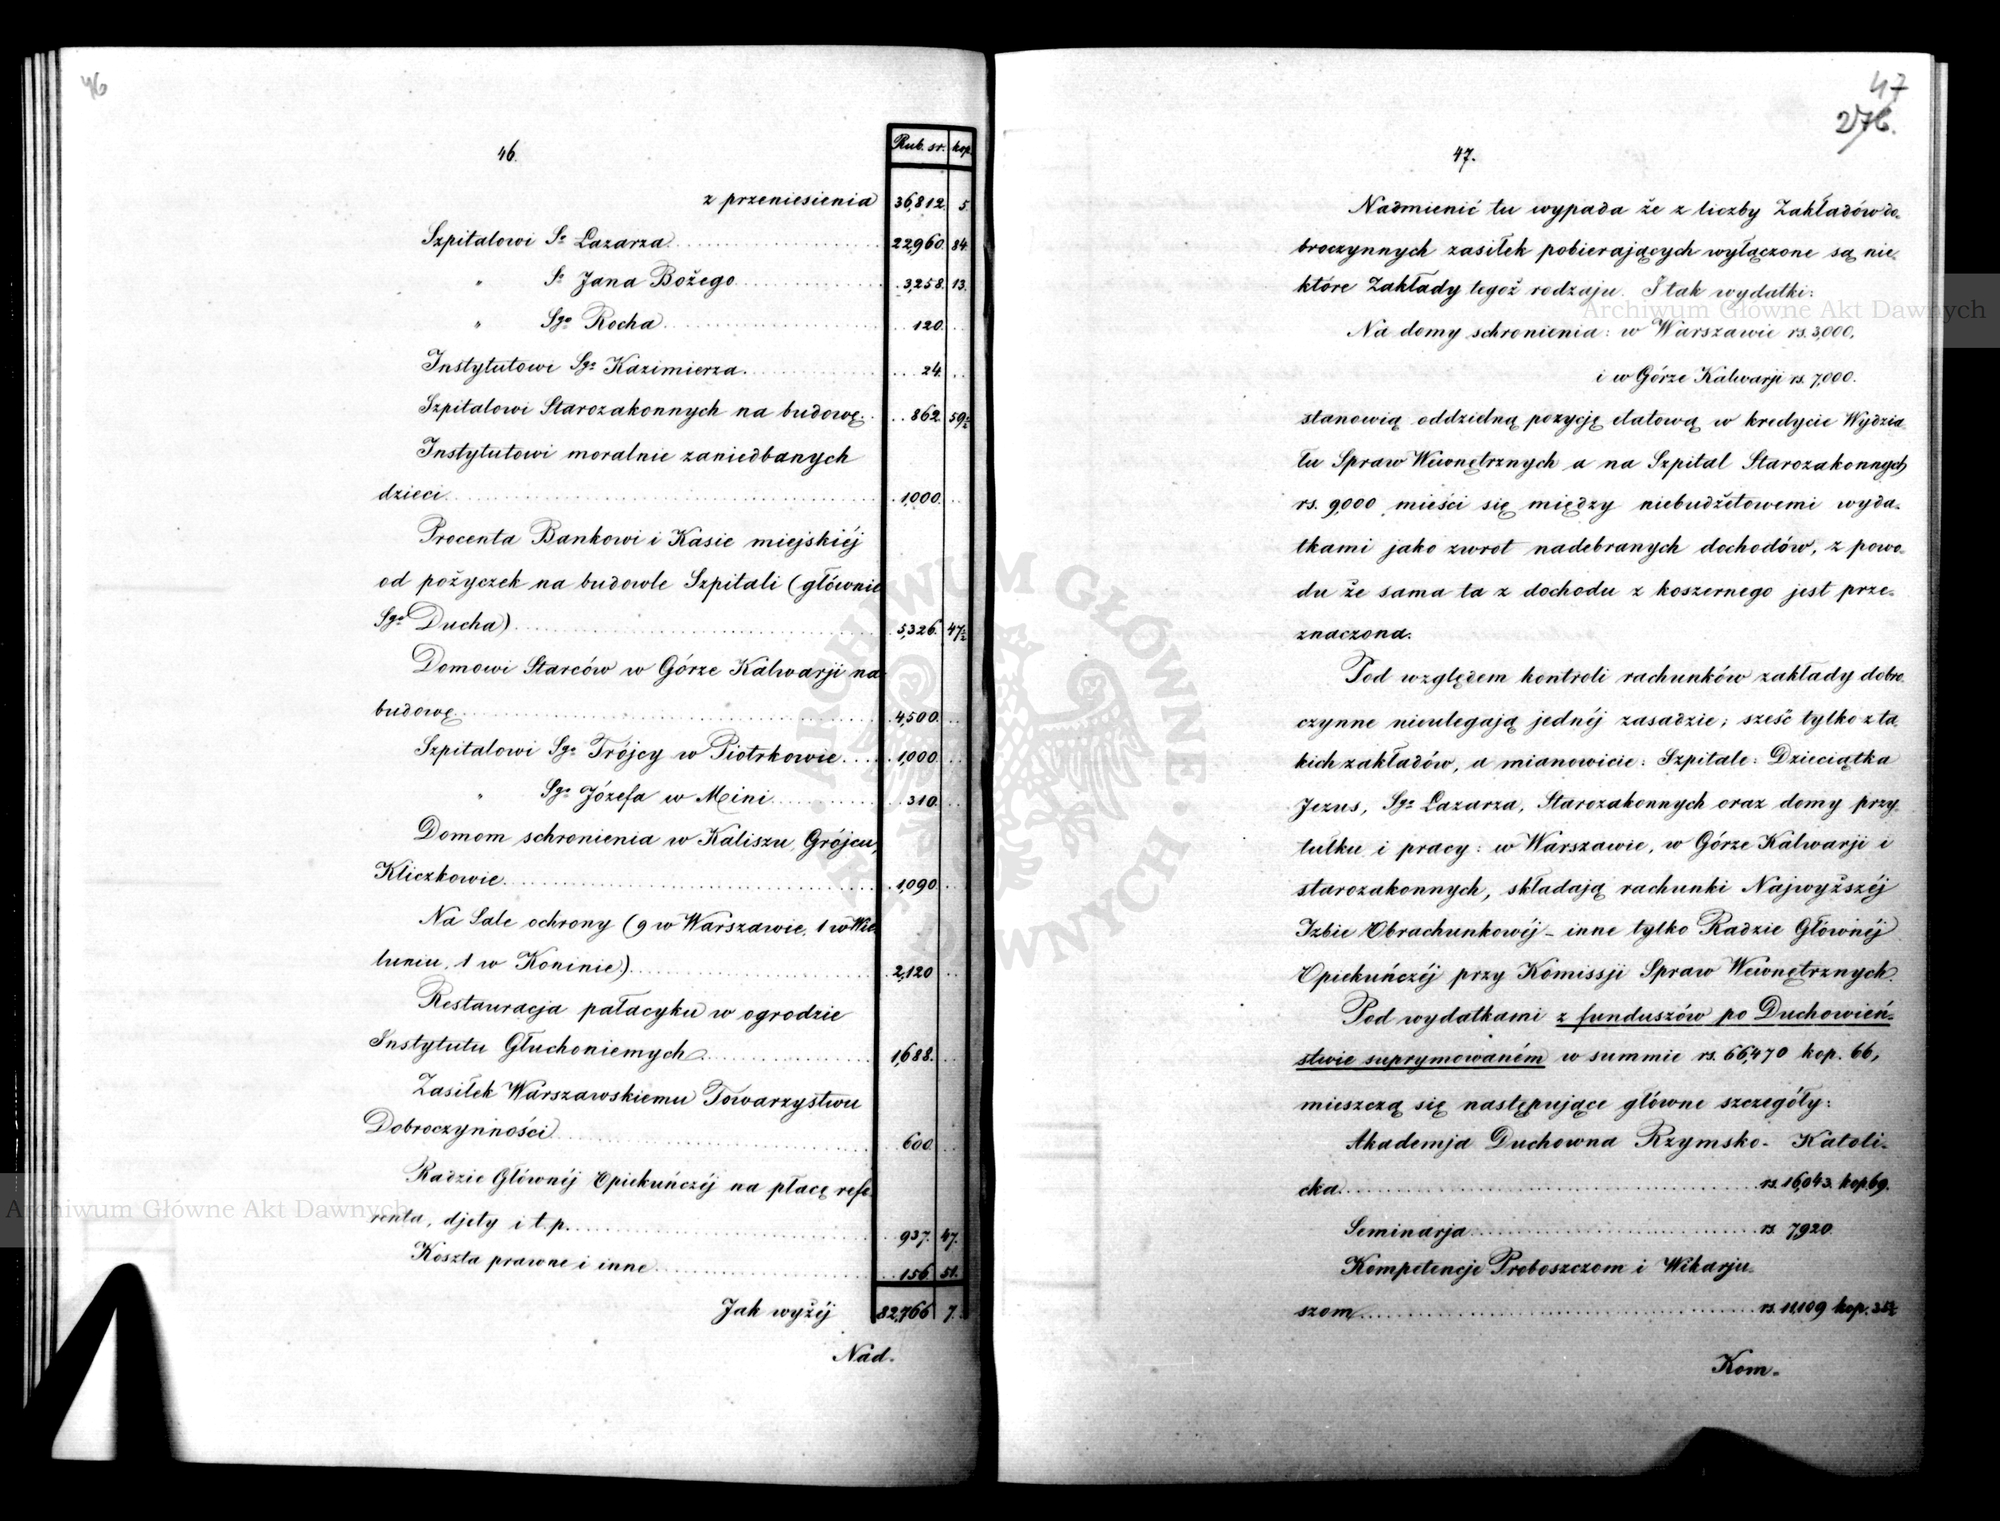 46
46.
Rub. sr. kop.
z przeniesienia 36,812. 5.
Szpitalowi Sº Łazarza 22,960. 84
" Sº Jana Bożego 3,258. 13.
" Sgº Rocha 120.
Instytutowi Sgº Kazimierza 24.
Szpitalowi Starozakonnych na budowę 862. 59½
Instytutowi moralnie zaniedbanych
dzieci 1,000.
Procenta Bankowi i Kasie miejskiéj
od pożyczek na budowle Szpitali (głównie
Sgº Ducha) 5,326. 47½
Domowi Starców w Górze Kalwarji na
budowę 4,500.
Szpitalowi Sgº Trójcy w Piotrkowie 1,000.
" Sgº Józefa w Mini 310.
Domom schronienia w Kaliszu, Grójcu,
Kliczkowie 1,090.
Na Sale ochrony (9 w Warszawie, 1 w Wie
luniu, 1 w Koninie) 2,120
Restauracja pałacyku w ogrodzie
Instytutu Głuchoniemych 1,688.
Zasiłek Warszawskiemu Towarzystwu
Dobroczynności 600
Radzie Głównéj Opiekuńczéj na płacę refe
renta, djety i t. p. 937. 47.
Koszta prawne i inne 156 51.
Jak wyżéj 82,766 7.
Nad-
47
276.
47.
Nadmienić tu wypada że z liczby Zakładów do-
broczynnych zasiłek pobierających wyłączone są nie-
które Zakłady tegoż rodzaju. I tak wydatki:
Na domy schronienia: w Warszawie rs. 3,000,
i w Górze Kalwarji rs. 7,000.
stanowią oddzielną pozycję etatową w kredycie Wydzia-
łu Spraw Wewnętrznych a na Szpital Starozakonnych
rs. 9,000 mieści się między niebudżetowemi wyda-
tkami jako zwrot nadebranych dochodów, z powo-
du że sama ta z dochodu z koszernego jest prze-
znaczona.
Pod względem kontroli rachunków zakłady dobro
czynne nieulegają jednéj zasadzie; sześć tylko z ta
kich zakładów, a mianowicie: Szpitale: Dzieciątka
Jezus, Sgº Łazarza, Starozakonnych oraz domy przy
tułku i pracy: w Warszawie, w Górze Kalwarji i
starozakonnych, składają rachunki Najwyższéj
Izbie Obrachunkowéj – inne tylko Radzie Głównéj
Opiekuńczéj przy Komissji Spraw Wewnętrznych.
Pod wydatkami z funduszów po Duchowień-
stwie suprymowaném w summie rs. 66,470 kop. 66,
mieszczą się następujące główne szczegóły:
Akademja Duchowna Rzymsko-Katoli-
cka rs. 16,043. kop. 69.
Seminarja rs. 7,920.
Kompetencje Proboszczom i Wikarju-
szom rs. 11,109 kop. 35½
Kom-
Archiwum Główne Akt Dawnych
Archiwum Główne Akt Dawnych